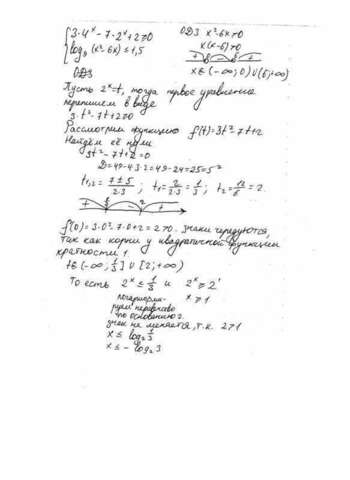 {3·4ˣ - 7·2ˣ + 2 ≥ 0
log₉(x² - 6x) ≤ 1,5
ОДЗ x² - 6x > 0
x(x - 6) > 0
+ 0 - 6 +
x ∈ (-∞; 0) ∪ (6; +∞)
ОДЗ
Пусть 2ˣ = t, тогда первое уравнение
перепишем в виде
3·t² - 7t + 2 ≥ 0
Рассмотрим функцию f(t) = 3t² - 7t + 2
Найдём её нули
3t² - 7t + 2 = 0
D = 49 - 4·3·2 = 49 - 24 = 25 = 5²
t₁,₂ = (7 ± 5)/(2·3) ; t₁ = 2/(2·3) = 1/3 ; t₂ = 12/6 = 2.
+ 1/3 - 2 +
f(0) = 3·0² - 7·0 + 2 = 2 > 0. знаки чередуются,
так как корни у квадратичной функции
кратности 1.
t ∈ (-∞; 1/3] ∪ [2; +∞)
То есть 2ˣ ≤ 1/3 и 2ˣ ≥ 2¹
x ≥ 1
логарифми-
руем неравенство
по основанию 2.
знак не меняется, т.к. 2 > 1
x ≤ log₂ 1/3
x ≤ - log₂ 3